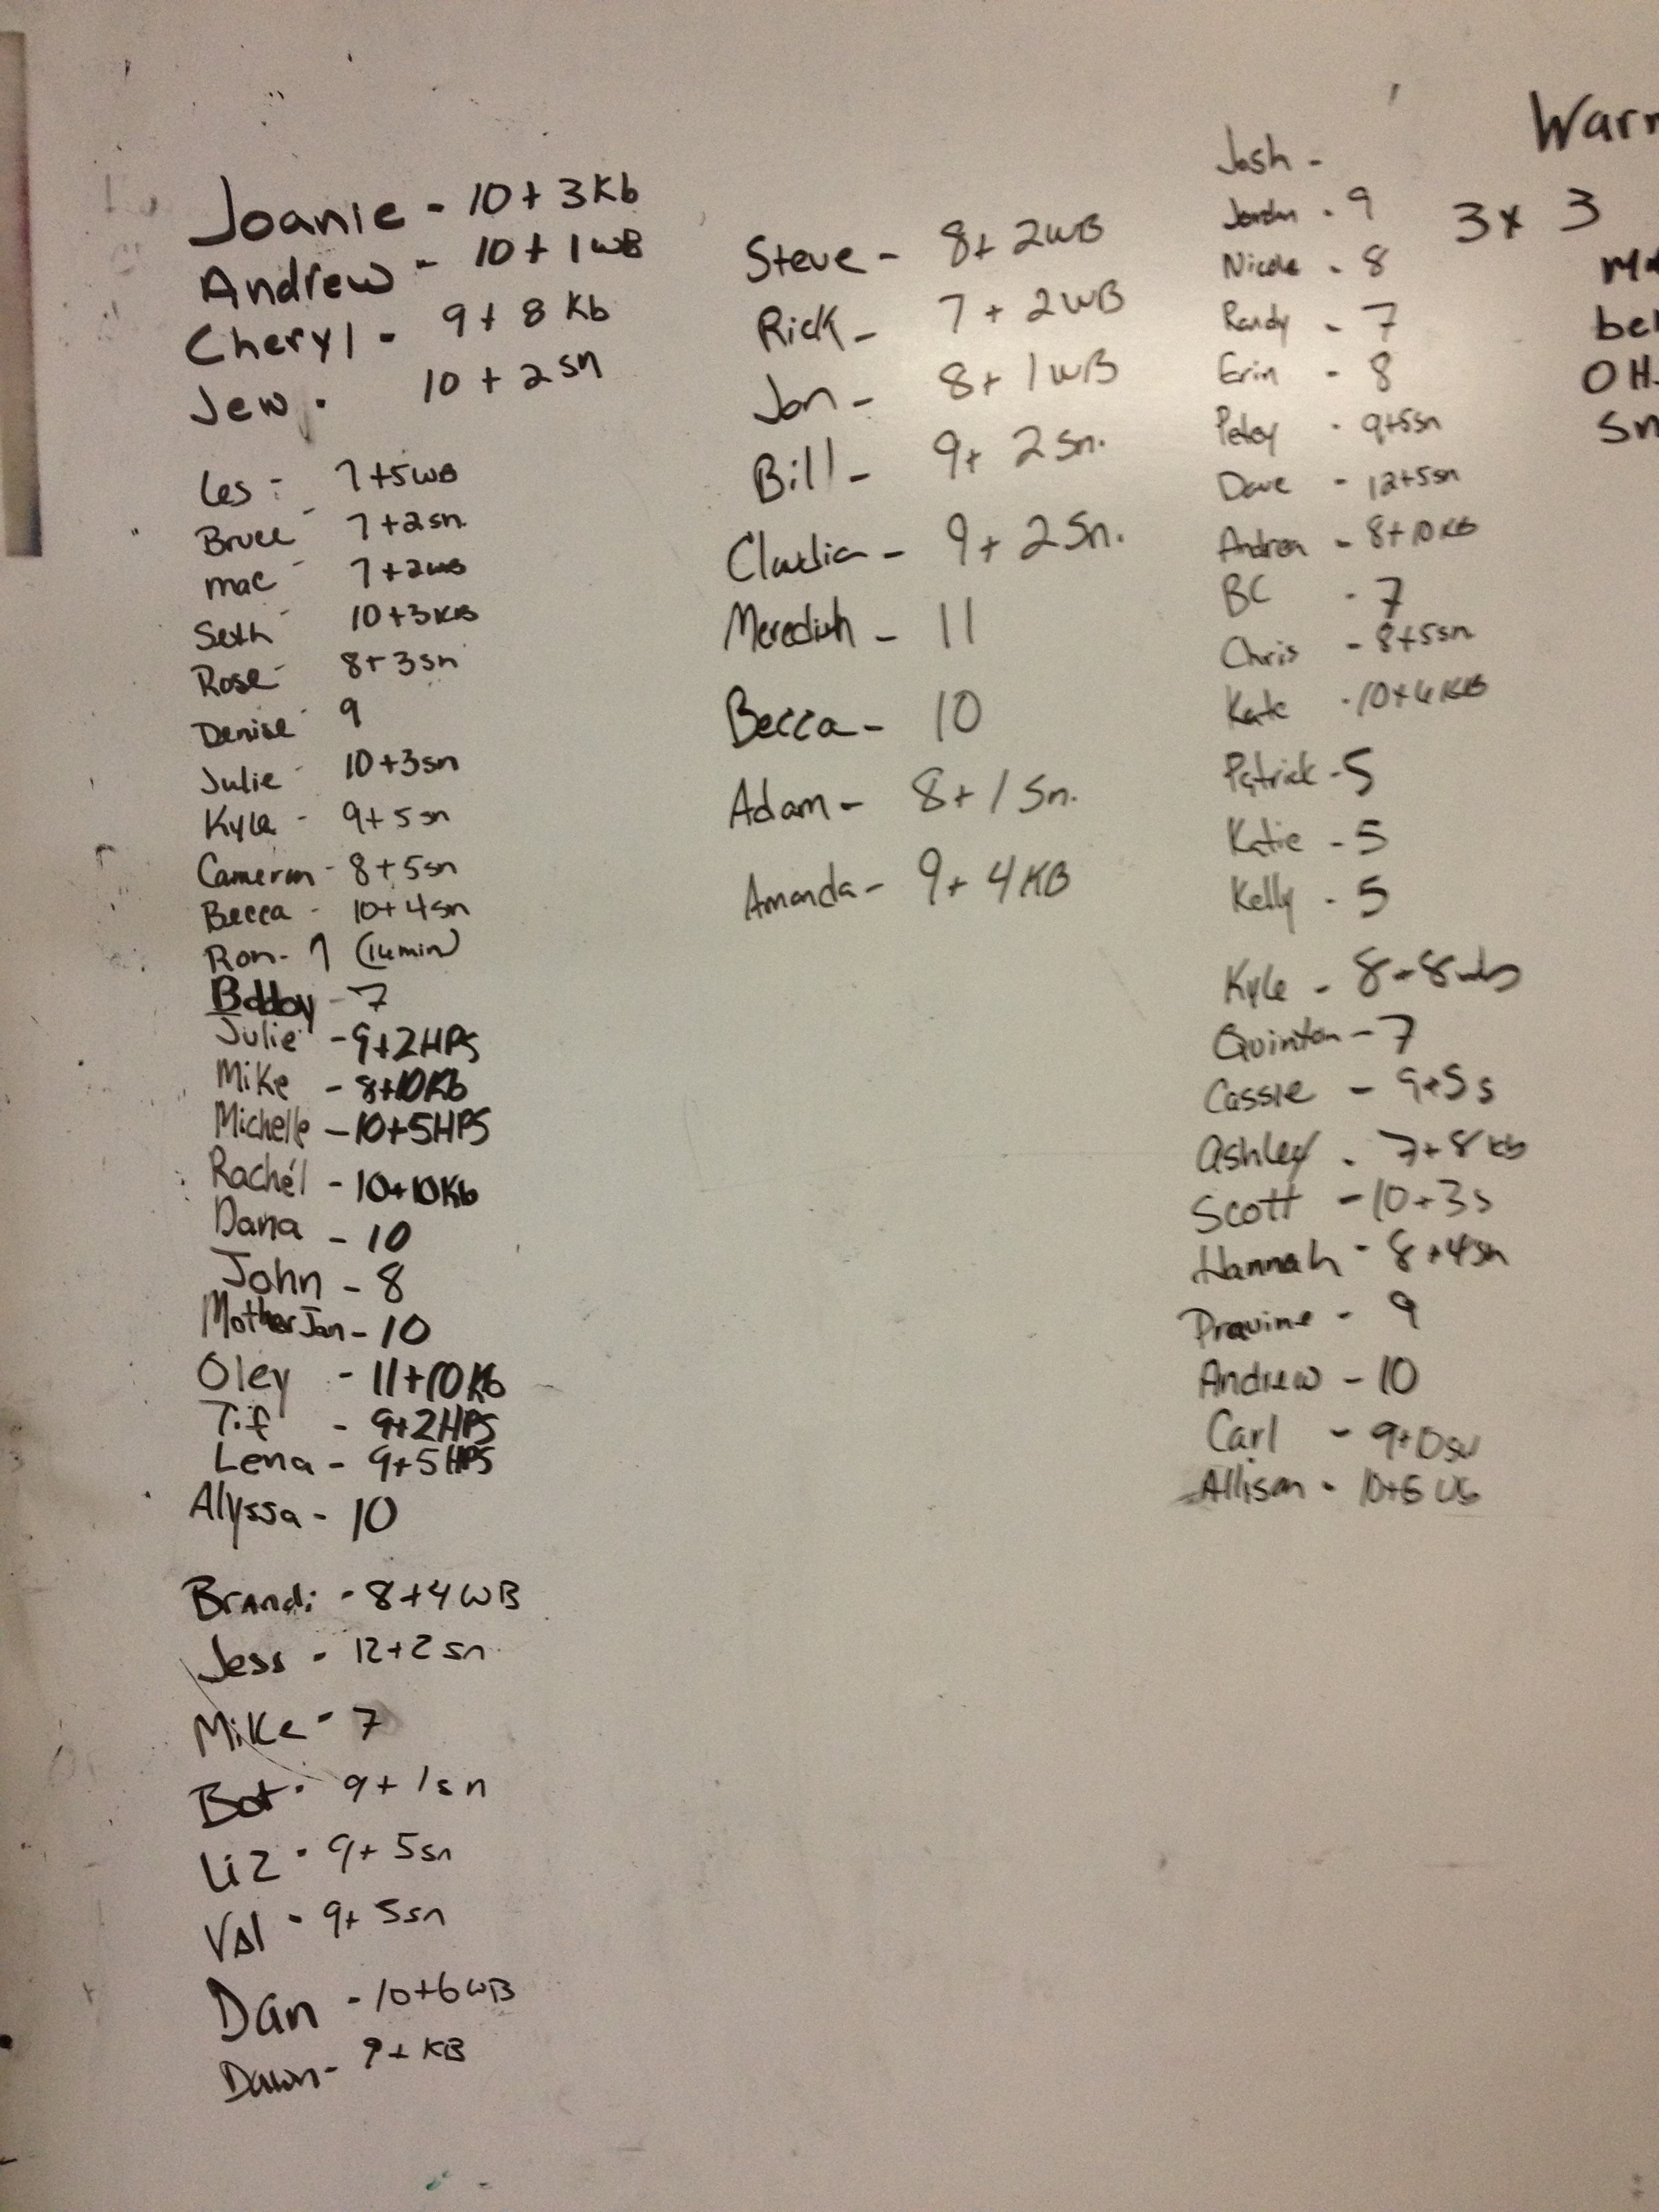 Joanie - 10 + 3 Kb
Andrew - 10 + 1 WB
Cheryl - 9 + 8 Kb
Jew . 10 + 2 sn
Les - 7 +5 WB
Bruce - 7 +2 sn.
mac - 7 +2 WB
Seth - 10 +3 KB
Rose - 8+ 3 sn
Denise - 9
Julie - 10 +3 sn
Kyle - 9+ 5 sn
Cameron - 8 + 5 sn
Becca - 10+ 4 sn
Ron - 7 (14min)
Bobby - 7
Julie - 9+2HPS
Mike - 8+10Kb
Michelle - 10+5HPS
Rachel - 10+10Kb
Dana - 10
John - 8
Mother Jan - 10
Oley - 11+10Kb
Tif - 9+2HPS
Lena - 9+5HPS
Alyssa - 10
Brandi - 8+4 WB
Jess - 12+2 sn
Mike - 7
Bot - 9+ 1 sn
Liz - 9+ 5 sn
Val - 9+ 5 sn
Dan - 10+6 WB
Dawn - 9+ KB
Steve - 8+ 2WB
Rick - 7 + 2WB
Jon - 8+ 1WB
Bill - 9+ 2 Sn.
Claudia - 9+ 2 Sn.
Meredith - 11
Becca - 10
Adam - 8+ 1 Sn.
Amanda - 9+ 4 KB
Josh -
Jordan - 9
Nicole - 8
Randy - 7
Erin - 8
- 9+5sn
Dave - 12+5sn
Andrea - 8+10KB
BC - 7
Chris - 8+5sn
Kate - 10+ KB
Patrick - 5
Katie - 5
Kelly - 5
Kyle - 8 - 8
Quinton - 7
Cassie - 9+5 s
Ashley - 7+ 8 Kb
Scott - 10+3 s
Hannah - 8+4sn
Pravine - 9
Andrew - 10
Carl - 9+
Allison - 10+5
Warm
3 x 3
OH
Sn